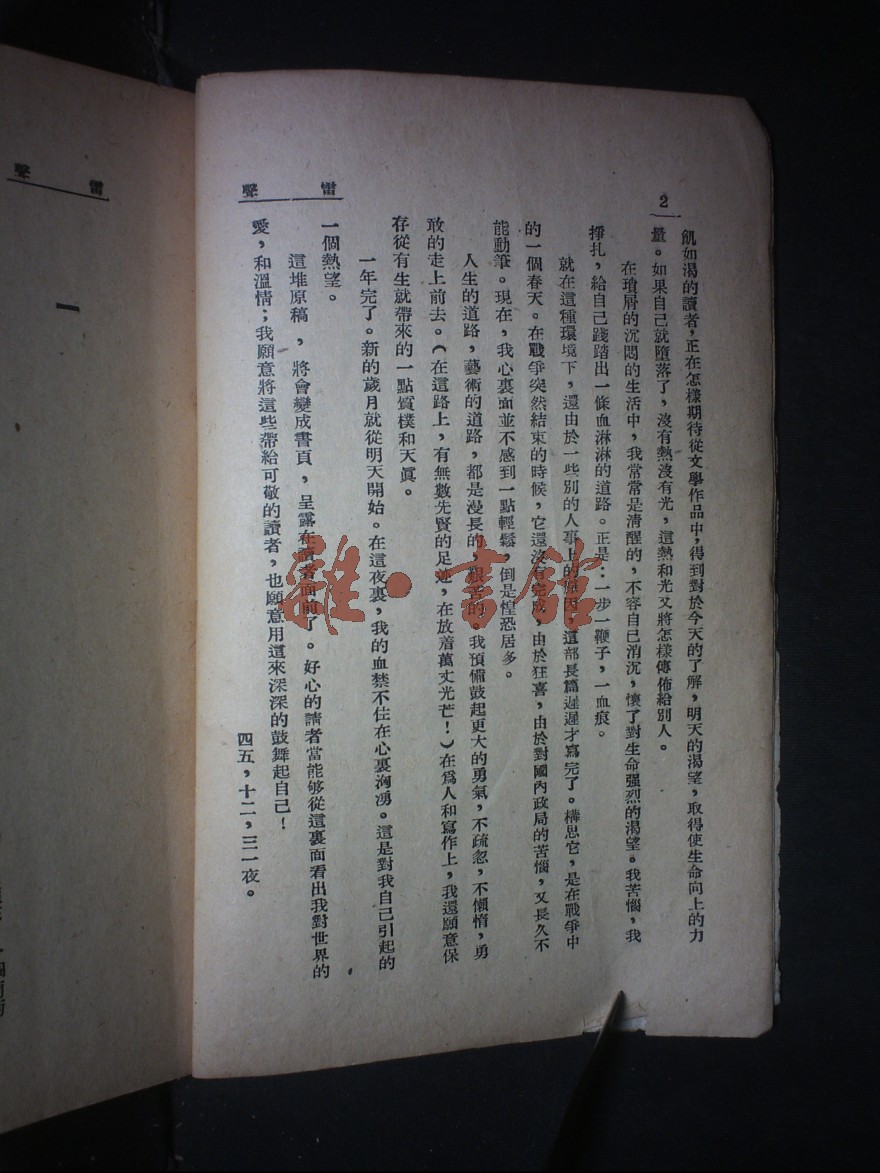 2
飢如渴的讀者，正在怎樣期待從文學作品中，得到對於今天的了解，明天的渴望，取得使生命向上的力
量。如果自己就墮落了，沒有熱沒有光，這熱和光又將怎樣傳佈給別人。
在瑣屑的沉悶的生活中，我常常是清醒的，不容自己消沉，懷了對生命强烈的渴望。我苦惱，我
掙扎，給自己踐踏出一條血淋淋的道路。正是：一步一鞭子，一血痕。
就在這種環境下，還由於一些別的人事上的原因，這部長篇遲遲才寫完了。構思它，是在戰爭中
的一個春天。在戰爭突然結束的時候，它還沒有完成，由於狂喜，由於對國內政局的苦惱，又長久不
能動筆。現在，我心裏面並不感到一點輕鬆，倒是惶恐居多。
人生的道路，藝術的道路，都是漫長的，艱苦的。我預備鼓起更大的勇氣，不疏忽，不懶惰，勇
敢的走上前去。（在這路上，有無數先賢的足迹，在放着萬丈光芒！）在爲人和寫作上，我還願意保
存從有生就帶來的一點質樸和天眞。
一年完了。新的歲月就從明天開始。在這夜裏，我的血禁不住在心裏洶湧。這是對我自己引起的
一個熱望。
這堆原稿，將會變成書頁，呈露在讀者面前了。好心的讀者當能够從這裏面看出我對世界的
愛，和溫情；我願意將這些帶給可敬的讀者，也願意用這來深深的鼓舞起自己！
四五，十二，三一夜。
雷聲
雷聲
一
雜·書館